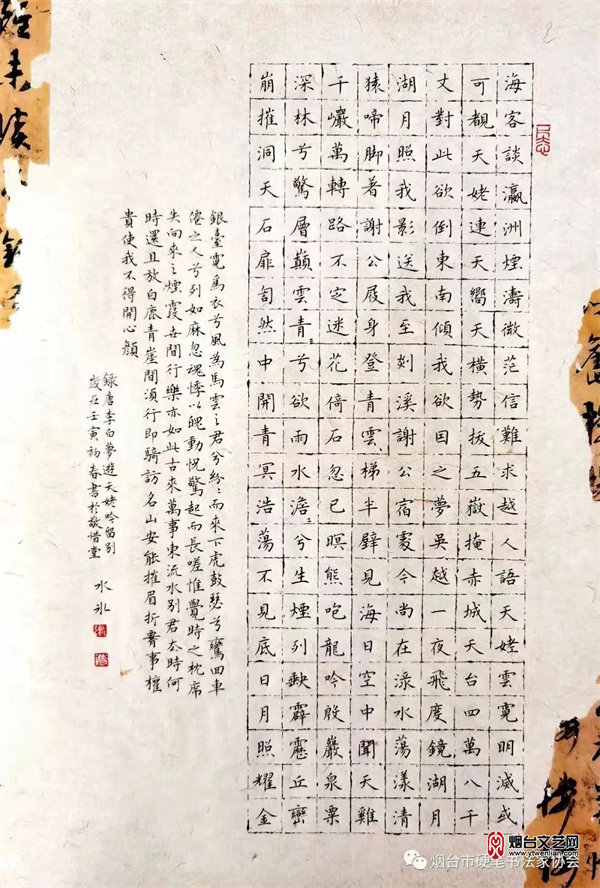 海客談瀛洲煙濤微茫信難求越人語天姥雲霓明滅或
可覩天姥連天嚮天橫勢拔五嶽掩赤城天台四萬八千
丈對此欲倒東南傾我欲因之夢吳越一夜飛度鏡湖月
湖月照我影送我至剡溪謝公宿處今尚在淥水蕩漾清
猿啼脚著謝公屐身登青雲梯半壁見海日空中聞天雞
千巖萬轉路不定迷花倚石忽已暝熊咆龍吟殷巖泉栗
深林兮驚層巔雲青〻兮欲雨水澹〻兮生煙列缺霹靂丘巒
崩摧洞天石扉訇然中開青冥浩蕩不見底日月照耀金
銀臺霓為衣兮風為馬雲之君兮紛〻而來下虎鼓瑟兮鸞回車
僊之人兮列如麻忽魂悸以魄動怳驚起而長嗟惟覺時之枕席
失向來之煙霞世間行樂亦如此古來萬事東流水別君去時何
時還且放白鹿青崖間須行即騎訪名山安能摧眉折腰事權
貴使我不得開心顏
錄唐李白夢遊天姥吟留別
歲在壬寅初春書於敬惜堂 水冰
烟台文艺网
www.ytwenyi.com
烟台市硬笔书法家协会